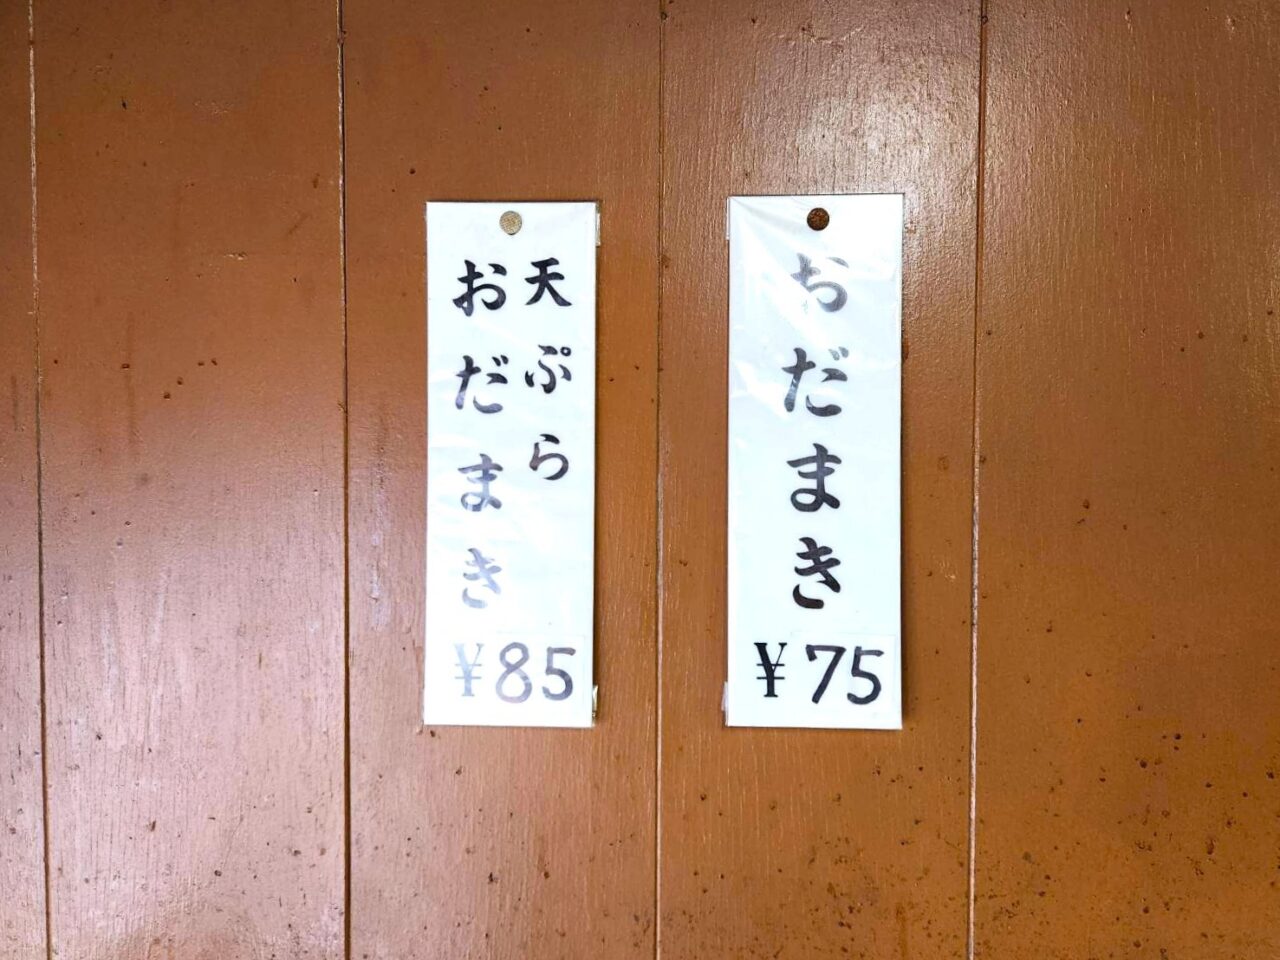 天ぷら
おだまき
¥85
おだまき
¥75